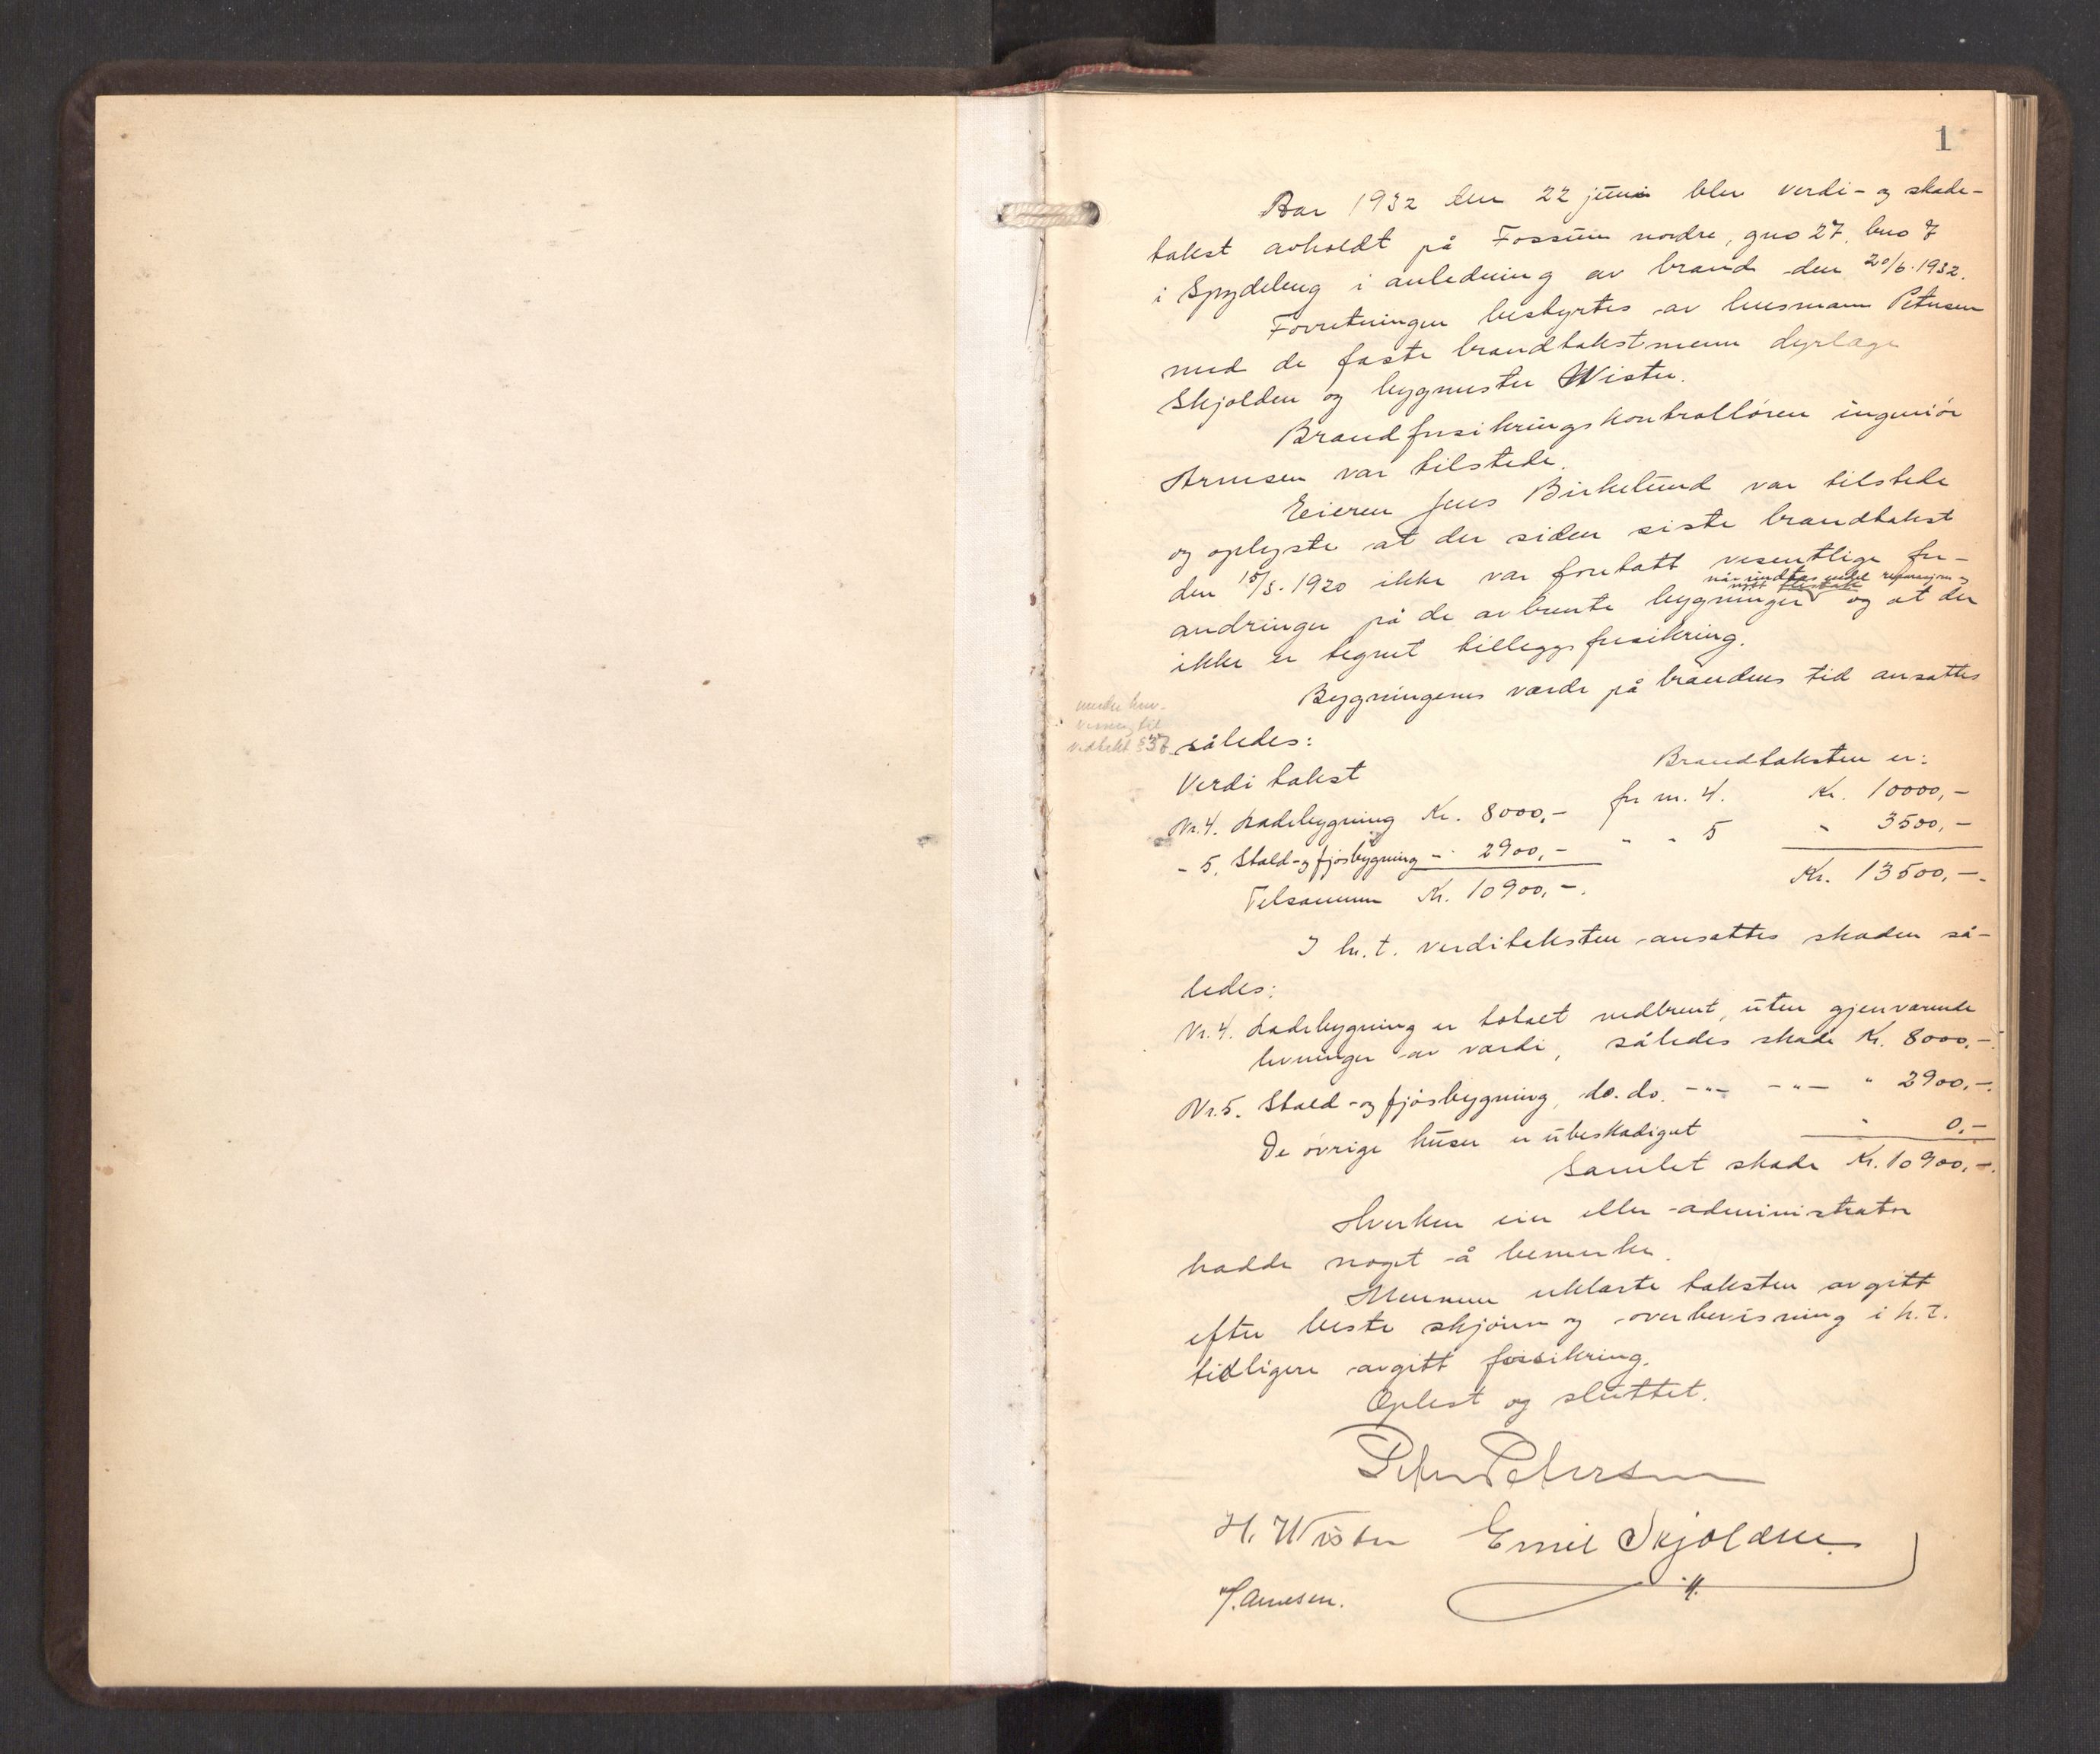 1
Aar 1932 den 22 juni blev verdi- og skade-
takst avholdt på Fossum nordre, gno 27, bno 7
i Spydeberg i anledning av brand den 20/6.1932.
Forretningen bestyrtes av lensmann Petersen
med de faste brandtakstmenn dyrlæge
Skjolden og bygmester Wister.
Brandforsikringskontrolløren ingeniør
Arnesen var tilstede.
Eieren Jens Birkelund var tilstede
og oplyste at der siden siste brandtakst
den 15/5.1920 ikke var foretatt vesentlige for-
når undtas endel reparasjon og
nytt
andringer på de avbrente bygninger og at der
ikke er tegnet tilleggsforsikring.
Bygningenes værdi på brandens tid ansattes
vedtekt § 37
således:
Verditakst Brandtaksten er:
Nr. 4. Ladebygning Kr. 8000,- for nr. 4. Kr. 10000,-
- 5. Stald- og fjøsbygning - 2900,- " - 5 " 3500,-
Tilsammen Kr. 10900,-. Kr. 13500,-.
I h. t. verditaksten ansattes skaden så-
ledes:
Nr. 4. Ladebygning er totalt nedbrent, uten gjenværende
levninger av værdi, således skade Kr. 8000,-.
Nr. 5. Stald- og fjøsbygning, do. do. -"- -"- " 2900,-.
De øvrige huser er ubeskadiget " 0,-
Samlet skade Kr. 10900,-.
Hverken eier eller administrator
hadde noget å bemerke.
Mennene erklærte taksten avgitt
efter beste skjønn og overbevisning i h. t.
tidligere avgitt forsikring.
Oplest og sluttet.
Peter Petersen
H. Wister Emil Skjolden
H. Arnesen.